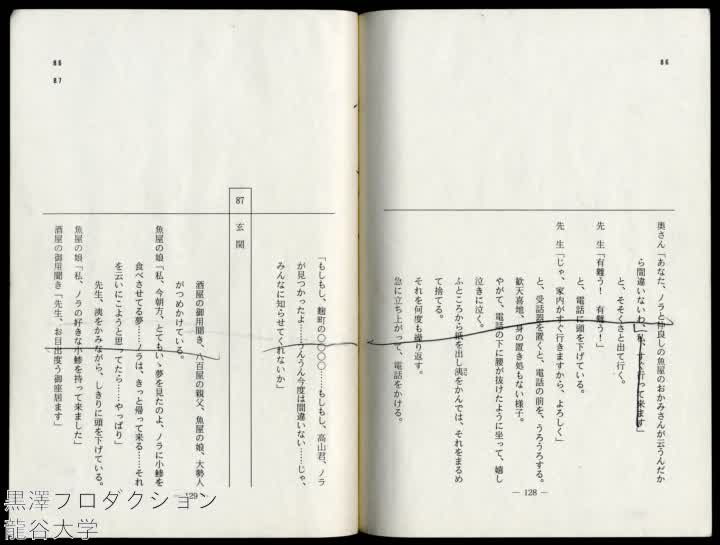 86
奥さん「あなた、ノラと仲良しの魚屋のおかみさんが云うんだか
ら間違いないわ、私、すぐ行って来ます」
と、そそくさと出て行く。
先 生「有難う! 有難う!」
と、電話に頭を下げている。
先 生「じゃ、家内がすぐ行きますから、よろしく」
と、受話器を置くと、電話の前を、うろうろする。
歓天喜地、身の置き処もない様子。
やがて、電話の下に腰が抜けたように坐って、嬉し
泣きに泣く。
ふところから紙を出し洟をかんでは、それをまるめ
て捨てる。
それを何度も繰り返す。
急に立ち上がって、電話をかける。
― 128 ―
86
87
「もしもし、麹町の〇〇〇〇……もしもし、高山君、ノラ
が見つかったよ……うんうん今度は間違いない……じゃ、
みんなに知らせてくれないか」
87 玄関
酒屋の御用聞き、八百屋の親父、魚屋の娘、大勢人
がつめかけている。
魚屋の娘「私、今朝方、とてもいゝ夢を見たのよ、ノラに小鯵を
食べさせてる夢……ノラは、きっと帰って来る……それ
を云いにこようと思ってたら……やっぱり」
先生、洟をかみながら、しきりに頭を下げている。
魚屋の娘「私、ノラの好きな小鯵を持って来ました」
酒屋の御用聞き「先生、お目出度う御座居ます」
― 129 ―
黒澤プロダクション
龍谷大学